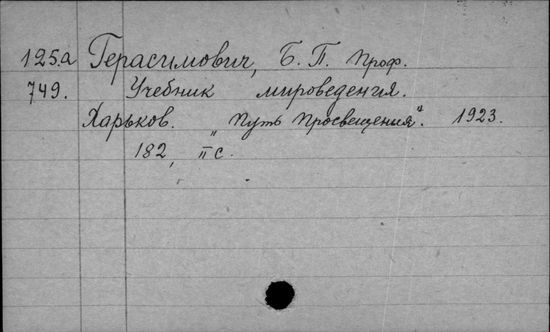 125.а Герасимович, Б. П. Проф.
749. Учебник мироведения.
Харьков. „Путь Просвещения“. 1923.
182, II с.